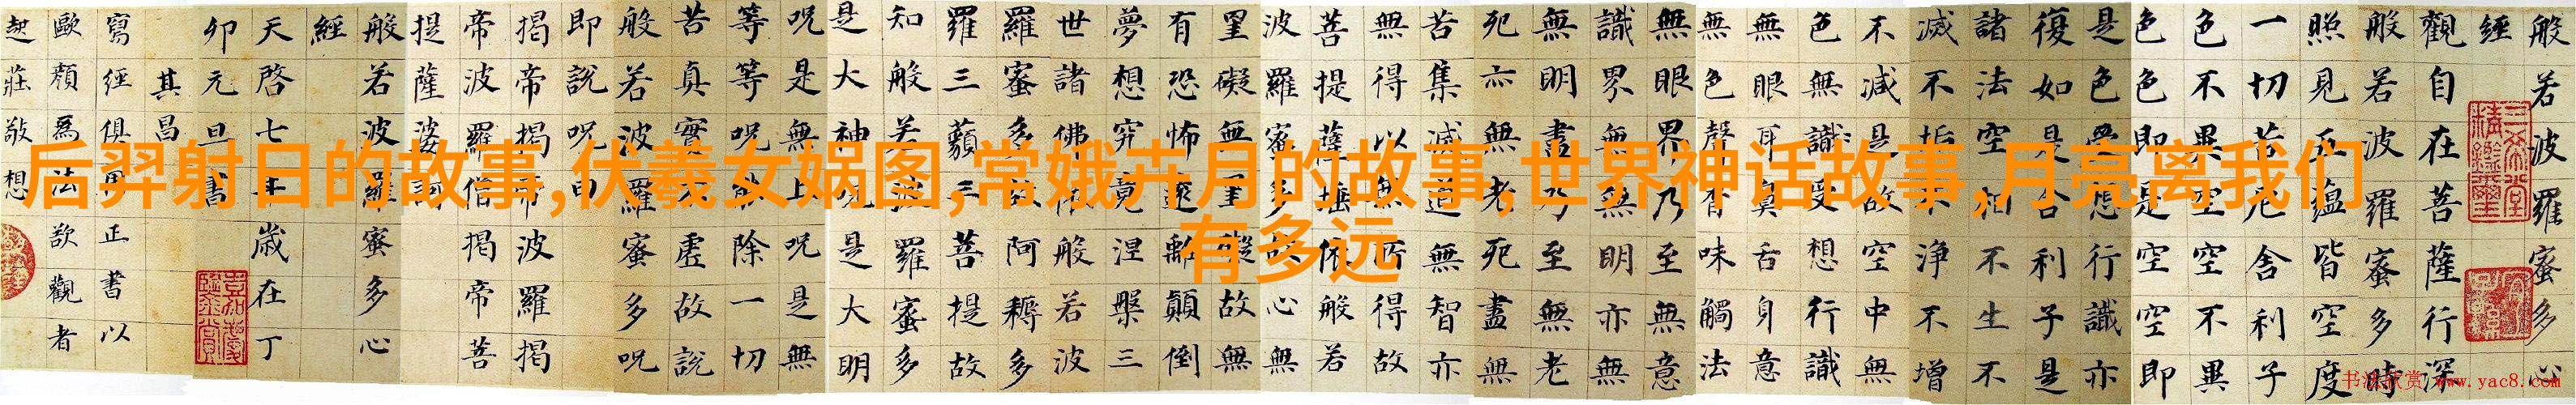 后羿射日的故事,伏羲女娲图,常娥卉月的故事,世界神话故事,月亮离我们
有多远
般若波羅蜜多心
經
觀自在菩薩行深
般若波羅蜜多時
照見五蘊皆空度
一切苦厄舍利子
色不異空空不異
色色即是空空即
是色受想行識亦
復如是舍利子是
諸法空相不生不
滅不垢不淨不增
不減是故空中無
色無識受想行識
無眼耳鼻舌身意
無色聲香味觸法
無眼界乃至無意
識界無無明亦無
無明盡乃至無老
死亦無老死盡無
苦集滅道無智亦
無得以無所得故
菩提薩埵依般若
波羅蜜多故心無
罣礙無罣礙故無
有恐怖遠離顛倒
夢想究竟涅槃三
世諸佛依般若波
羅蜜多故阿耨多
羅三藐三菩提故
知般若波羅蜜多
是大神呪是大明
呪是無上呪是無
等等呪能除一切
苦真實不虛故說
般若波羅蜜多呪
即說呪曰
揭帝揭帝波羅揭
帝波羅僧揭帝菩
提薩婆訶
般若波羅蜜多心
經
天啓七年歲在丁
卯元旦書
其昌
寫經俱用正書以
歐顏為法欲觀者
起莊敬想
书法欣赏 www.yac8.com